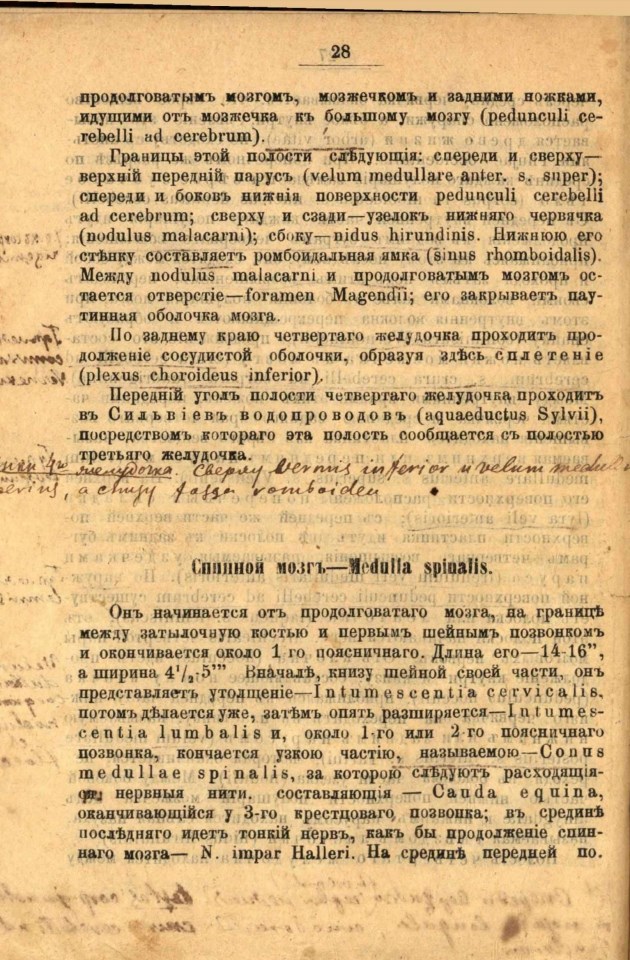 28
продолговатымъ мозгомъ, мозжечкомъ и задними ножками,
идущими отъ мозжечка къ большому мозгу (pedunculi ce-
rebelli ad cerebrum).
Границы этой полости слѣдующія: спереди и сверху—
верхній передній парусъ (velum medullare anter. s. super);
спереди и боковъ нижнія поверхности pedunculi cerebelli
ad cerebrum; сверху и сзади—узелокъ нижняго червячка
(nodulus malacarni); сбоку—nidus hirundinis. Нижнюю его
стѣнку составляетъ ромбоидальная ямка (sinus rhomboidalis).
Между nodulus malacarni и продолговатымъ мозгомъ ос-
тается отверстіе—foramen Magendii; его закрываетъ пау-
тинная оболочка мозга.
По заднему краю четвертаго желудочка проходитъ про-
долженіе сосудистой оболочки, образуя здѣсь сплетеніе
(plexus choroideus inferior).
Передній уголъ полости четвертаго желудочка проходитъ
въ Сильвіевъ водопроводовъ (aquaeductus Sylvii),
посредствомъ котораго эта полость сообщается съ полостью
третьяго желудочка.
желудочка. Сверху Vermis inferior и velum medul
а снизу fossa romboidea
Спинной мозгъ—Medulla spinalis.
Онъ начинается отъ продолговатаго мозга, на границѣ
между затылочную костью и первымъ шейнымъ позвонкомъ
и окончивается около 1 го поясничнаго. Длина его—14-16”,
а ширина 4¹/₂-5”’ Вначалѣ, книзу шейной своей части, онъ
представляетъ утолщеніе—Intumescentia cervicalis,
потомъ дѣлается уже, затѣмъ опять разширяется—Intumes-
centia lumbalis и, около 1-го или 2-го поясничнаго
позвонка, кончается узкою частію, называемою—Conus
medullae spinalis, за которою слѣдуютъ расходящія-
ся нервныя нити. составляющія — Cauda equina,
оканчивающійся у 3-го крестцоваго позвонка; въ срединѣ
послѣдняго идетъ тонкій нервъ, какъ бы продолженіе спин-
наго мозга— N. impar Halleri. На срединѣ передней по.